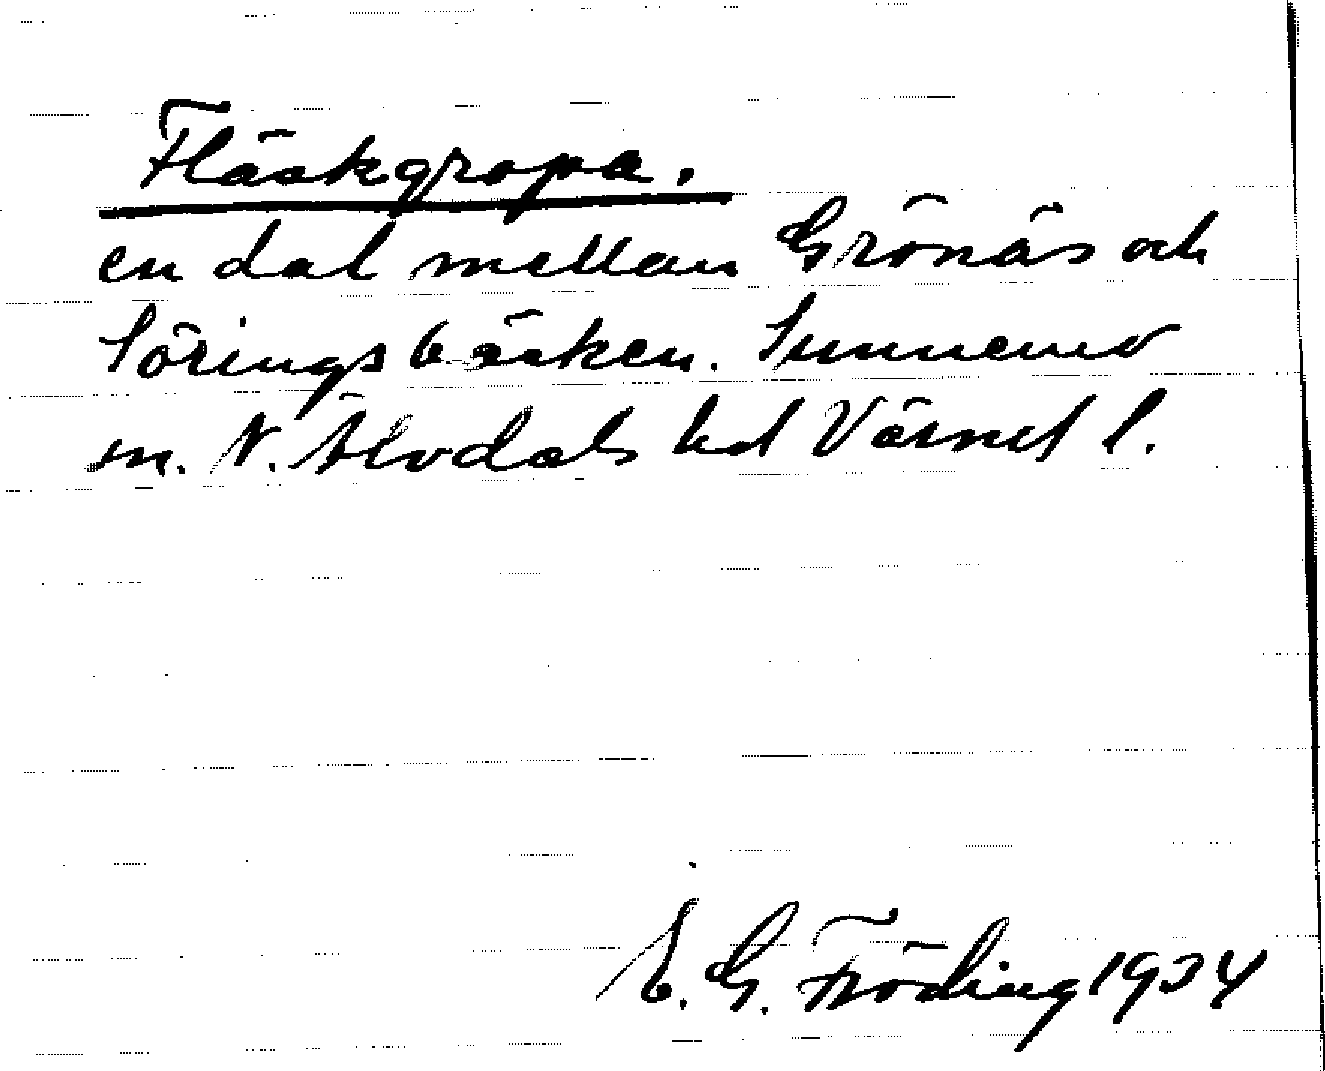 Fläskgropa.
en dal mellan Grönäs och
Söringsbäcken. Sunnemo
sn. N. Älvdals hd Värml l.
E. G. Fröding 1934